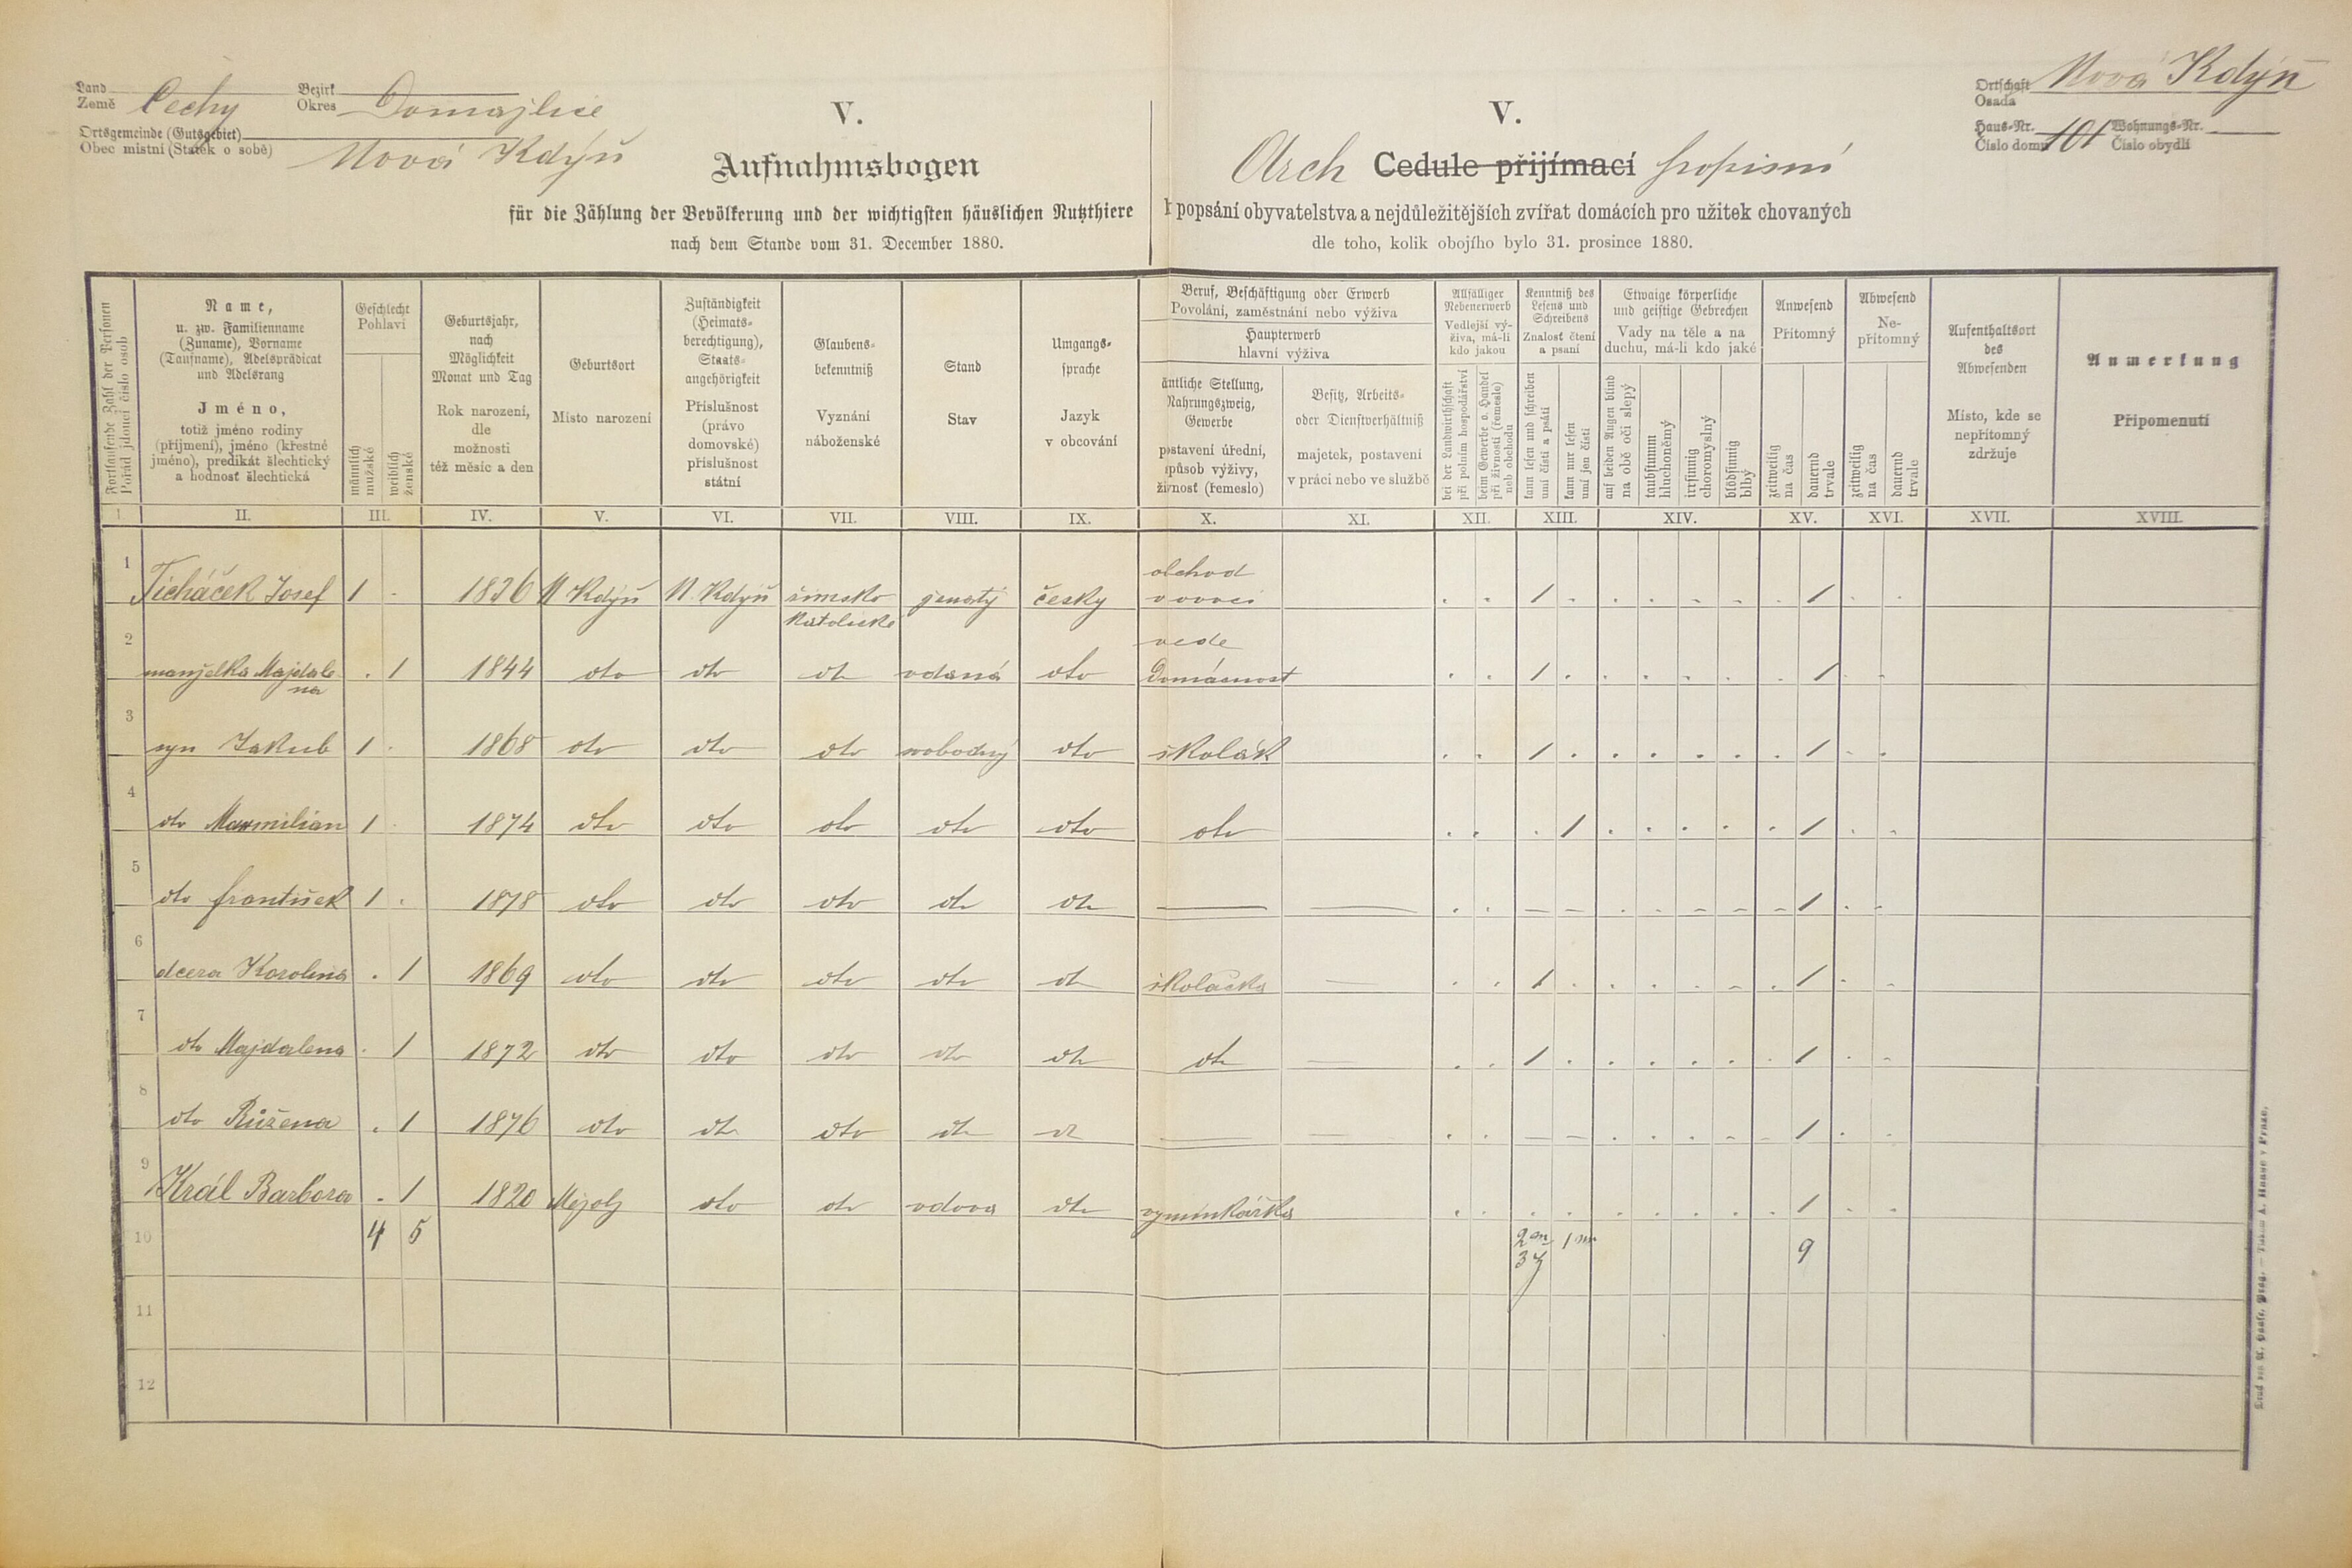 Land
Země Čechy
Bezirk
Okres Domajlice
Ortsgemeinde (Gutsgebiet)
Obec místní (Statek o sobě) Nová Kdýň
V.
Aufnahmsbogen
für die Zählung der Bevölkerung und der wichtigsten häuslichen Nutzthiere
nach dem Stande vom 31. December 1880.
V.
Arch Cedule přijímací popisní
k popsání obyvatelstva a nejdůležitějších zvířat domácích pro užitek chovaných
dle toho, kolik obojího bylo 31. prosince 1880.
Ortschaft
Osada Nová Kdýň
Haus-Nr.
Číslo domu 101
Wohnungs-Nr.
Číslo obydlí
Fortlaufende Zahl der Personen
Pořád jdoucí číslo osob
Name,
u. zw. Familienname
(Zuname), Vorname
(Taufname), Adelsprädicat
und Adelsrang
Jméno,
totiž jméno rodiny
(příjmení), jméno (křestné
jméno), predikát šlechtický
a hodnosť šlechtická
Geschlecht
Pohlaví
männlich
mužské
weiblich
ženské
Geburtsjahr,
nach
Möglichkeit
Monat und Tag
Rok narození,
dle
možnosti
též měsíc a den
Geburtsort
Místo narození
Zuständigkeit
(Heimats-
berechtigung),
Staats-
angehörigkeit
Příslušnost
(právo
domovské)
příslušnost
státní
Glaubens-
bekenntniß
Vyznání
náboženské
Stand
Stav
Umgangs-
sprache
Jazyk
v obcování
Beruf, Beschäftigung oder Erwerb
Povolání, zaměstnání nebo výživa
Haupterwerb
hlavní výživa
ämtliche Stellung,
Nahrungszweig,
Gewerbe
postavení úřední,
způsob výživy,
živnosť (řemeslo)
Besitz, Arbeits-
oder Dienstverhältniß
majetek, postavení
v práci nebo ve službě
Allfälliger
Nebenerwerb
Vedlejší vý-
živa, má-li
kdo jakou
bei der Landwirthschaft
při polním hospodářství
beim Gewerbe o. Handel
při živnosti (řemesle)
neb obchodu
Kenntniß des
Lesens und
Schreibens
Znalosť čtení
a psaní
kann lesen und schreiben
umí čísti a psáti
kann nur lesen
umí jen čísti
Etwaige körperliche
und geistige Gebrechen
Vady na těle a na
duchu, má-li kdo jaké
auf beiden Augen blind
na obě oči slepý
taubstumm
hluchoněmý
irrsinnig
choromyslný
blödsinnig
blbý
Anwesend
Přítomný
zeitweilig
na čas
dauernd
trvale
Abwesend
Ne-
přítomný
zeitweilig
na čas
dauernd
trvale
Aufenthaltsort
des
Abwesenden
Místo, kde se
nepřítomný
zdržuje
Anmerkung
Připomenutí
I II. III. IV. V. VI. VII. VIII. IX. X. XI. XII. XIII. XIV. XV. XVI. XVII. XVIII.
1 Ticháček Josef 1 . 1836 N Kdýň N. Kdýň římsko katolické ženatý česky obchod v ovoci . . 1 . . . . . . 1 . .
2 manželka Majdale-
na . 1 1844 dto dto dto vdaná dto vede Domácnost . . 1 . . . . . . 1 . .
3 syn Jakub 1 . 1868 dto dto dto svobodný dto školák . . 1 . . . . . . 1 . .
4 dto Maxmilian 1 . 1874 dto dto dto dto dto dto . . . 1 . . . . . 1 . .
5 dto František 1 . 1878 dto dto dto dto dto — — . . — — . . . . . 1 . .
6 dcera Karolina . 1 1869 dto dto dto dto dto školačka — . . 1 . . . . . . 1 . .
7 dto Majdalena . 1 1872 dto dto dto dto dto dto — . . 1 . . . . . . 1 . .
8 dto Růžena . 1 1876 dto dto dto dto dto — — . . — — . . . . . 1 . .
9 Král Barbora . 1 1820 dto dto vdova dto výminkářka . . . . . . . . . 1 . .
10 4 5 2 m 1 m 9
3 ž
11
12